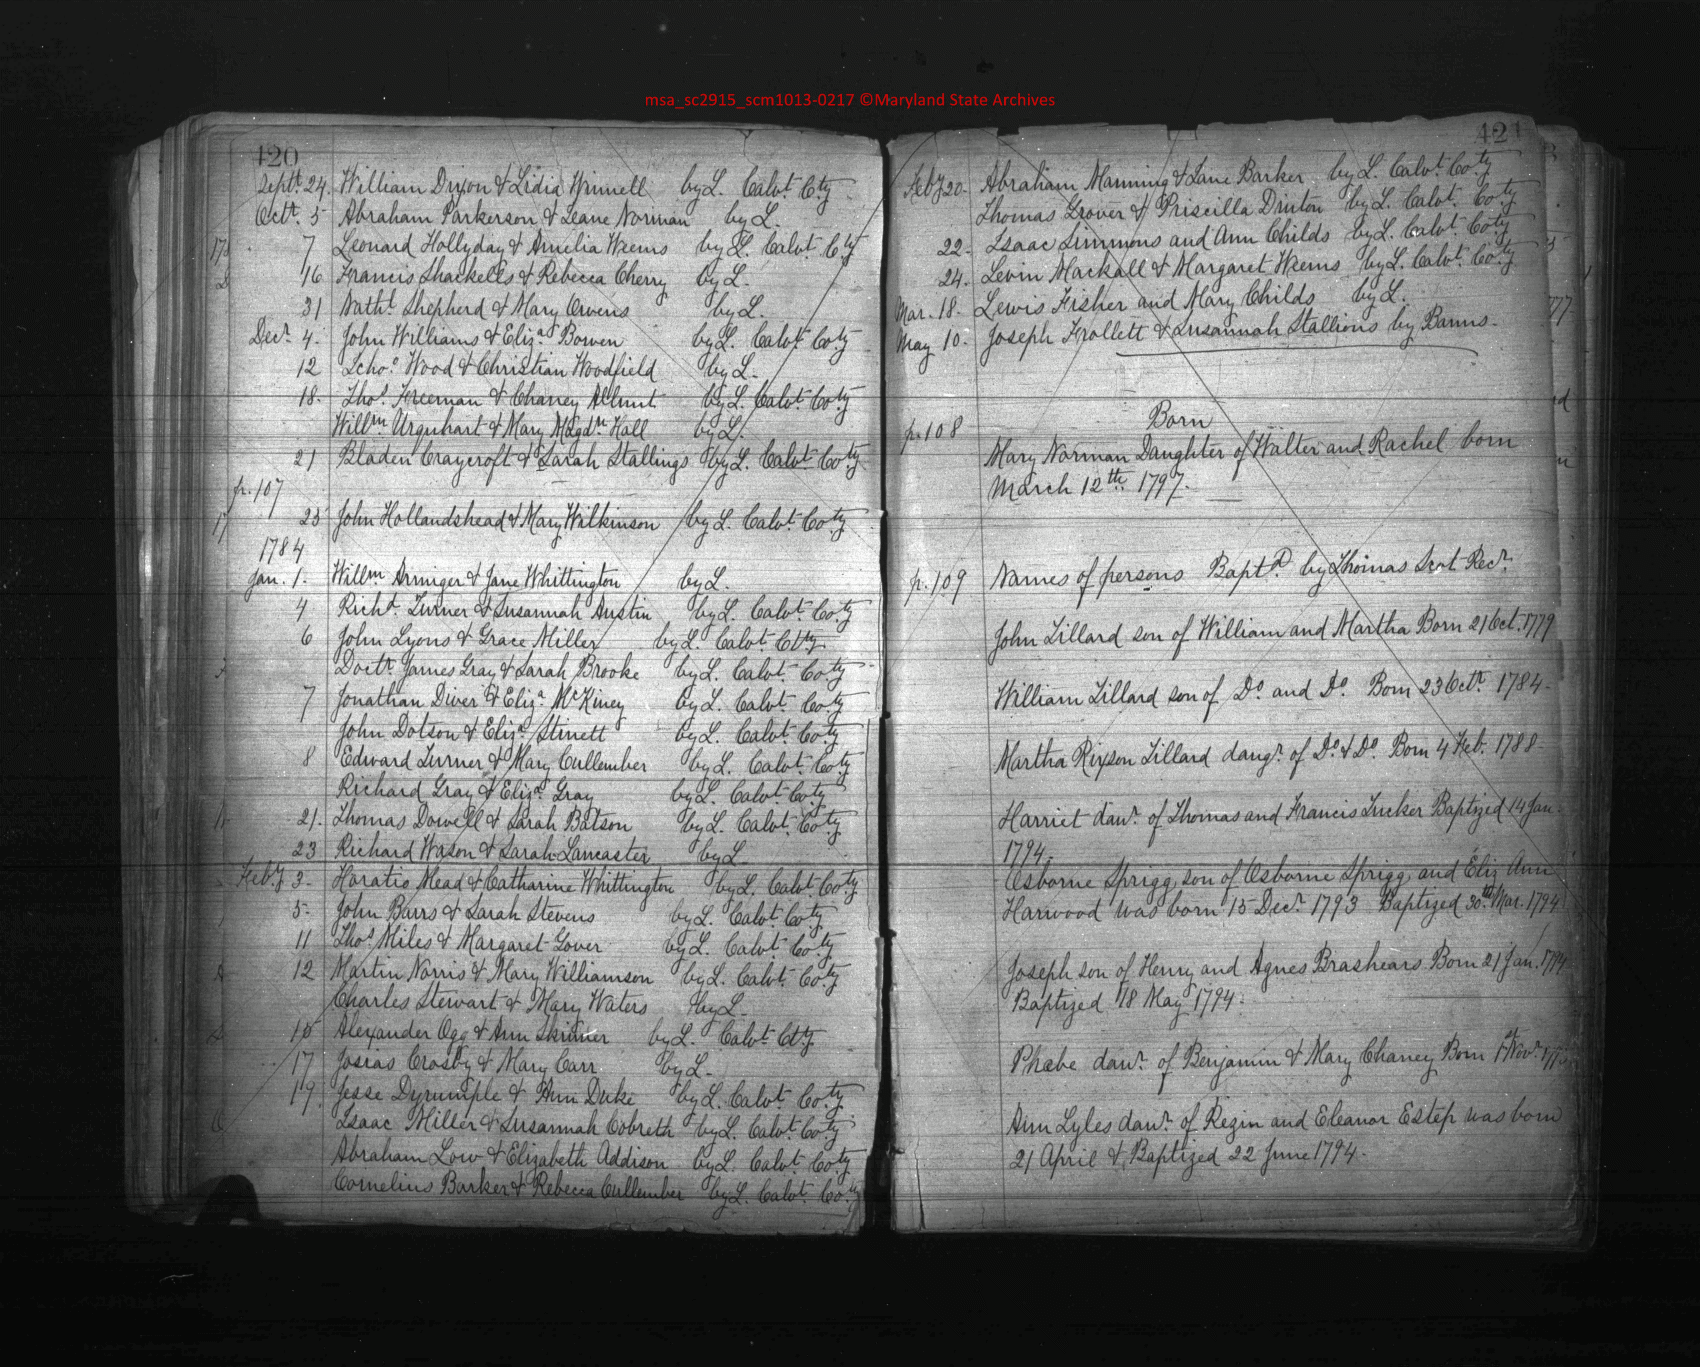 msa_sc2915_scm1013-0217 ©Maryland State Archives
420
Septr. 24. William Dixon & Lidia Winnell by L. Calvt. Coty
Octr. 5 Abraham Parkerson & Leane Norman by L.
7 Leonard Hollyday & Amelia Weems by L. Calvt. Coty
16 Francis Shackells & Rebecca Cherry by L.
31 Nathl. Shepherd & Mary Owens by L.
Decr. 4. John Williams & Eliza. Bowen by L. Calvt. Coty
12 Scho. Wood & Christian Woodfield by L.
18. Thos. Freeman & Chaney Allnut by L. Calvt. Coty
Willm. Urquhart & Mary Magdn. Hall by L.
21 Bladen Craycroft & Sarah Stallings by L. Calvt. Coty
p. 107
23 John Hollandshead & Mary Wilkinson by L. Calvt. Coty
1784
Jan. 1. Willm. Armiger & Jane Whittington by L.
4 Richd. Turner & Susannah Austin by L. Calvt. Coty
6 John Lyons & Grace Miller by L. Calvt. Cty.
Doctr. James Gray & Sarah Brooke by L. Calvt. Coty
7 Jonathan Diver & Eliza. McKiney by L. Calvt. Coty
John Dotson & Eliza. Stinett by L. Calvt. Coty
8 Edward Turner & Mary Cullember by L. Calvt. Coty
Richard Gray & Eliza. Gray by L. Calvt. Coty
21. Thomas Dowell & Sarah Batson by L. Calvt. Coty
23 Richard Wason & Sarah Lancaster by L.
Feby 3. Horatio Mead & Catharine Whittington by L. Calvt. Coty
5. John Barrs & Sarah Stevens by L. Calvt. Coty
11 Thos. Miles & Margaret Gover by L. Calvt. Coty
12 Martin Norris & Mary Williamson by L. Calvt. Coty
Charles Stewart & Mary Waters by L.
15 Alexander Ogg & Ann Skinner by L. Calvt. Cty.
17 Josias Crosby & Mary Carr by L.
19 Jesse Dyrumple & Ann Duke by L. Calvt. Coty
Isaac Miller & Susannah Cobreth by L. Calvt. Coty
Abraham Low & Elizabeth Addison by L. Calvt. Coty
Cornelius Barker & Rebecca Cullember by L. Calvt. Coty
421
Feby 20. Abraham Manning & Lane Barker by L. Calvt. Coty
Thomas Grover & Priscilla Druton by L. Calvt. Coty
22. Isaac Simmons and Ann Childs by L. Calvt. Coty
24. Levin Mackall & Margaret Weems by L. Calvt. Coty
Mar. 18. Lewis Fisher and Mary Childs by L.
May 10. Joseph Trollett & Susannah Stallions by Banns.
Born
p. 108
Mary Norman Daughter of Walter and Rachel born
March 12th. 1797.
p. 109 Names of persons Baptd. by Thomas Scot Recr.
John Lillard son of William and Martha Born 21 Oct. 1779
William Lillard son of Do. and Do. Born 23 Octr. 1784.
Martha Rixson Lillard daugr. of Do. & Do. Born 4 Feb. 1788
Harriet daur. of Thomas and Francis Tucker Baptized 14 Jan.
1794.
Osborne Sprigg son of Osborne Sprigg and Eliz Ann
Harwood was born 15 Decr. 1793 Baptized 30th Mar. 1794
Joseph son of Henry and Agnes Brashears Born 21 Jan. 1794
Baptized 18 May 1794.
Phœbe daur. of Benjamin & Mary Chaney Born 1st Novr.
Ann Lyles daur. of Rezin and Eleanor Estep was born
21 April & Baptized 22 June 1794.